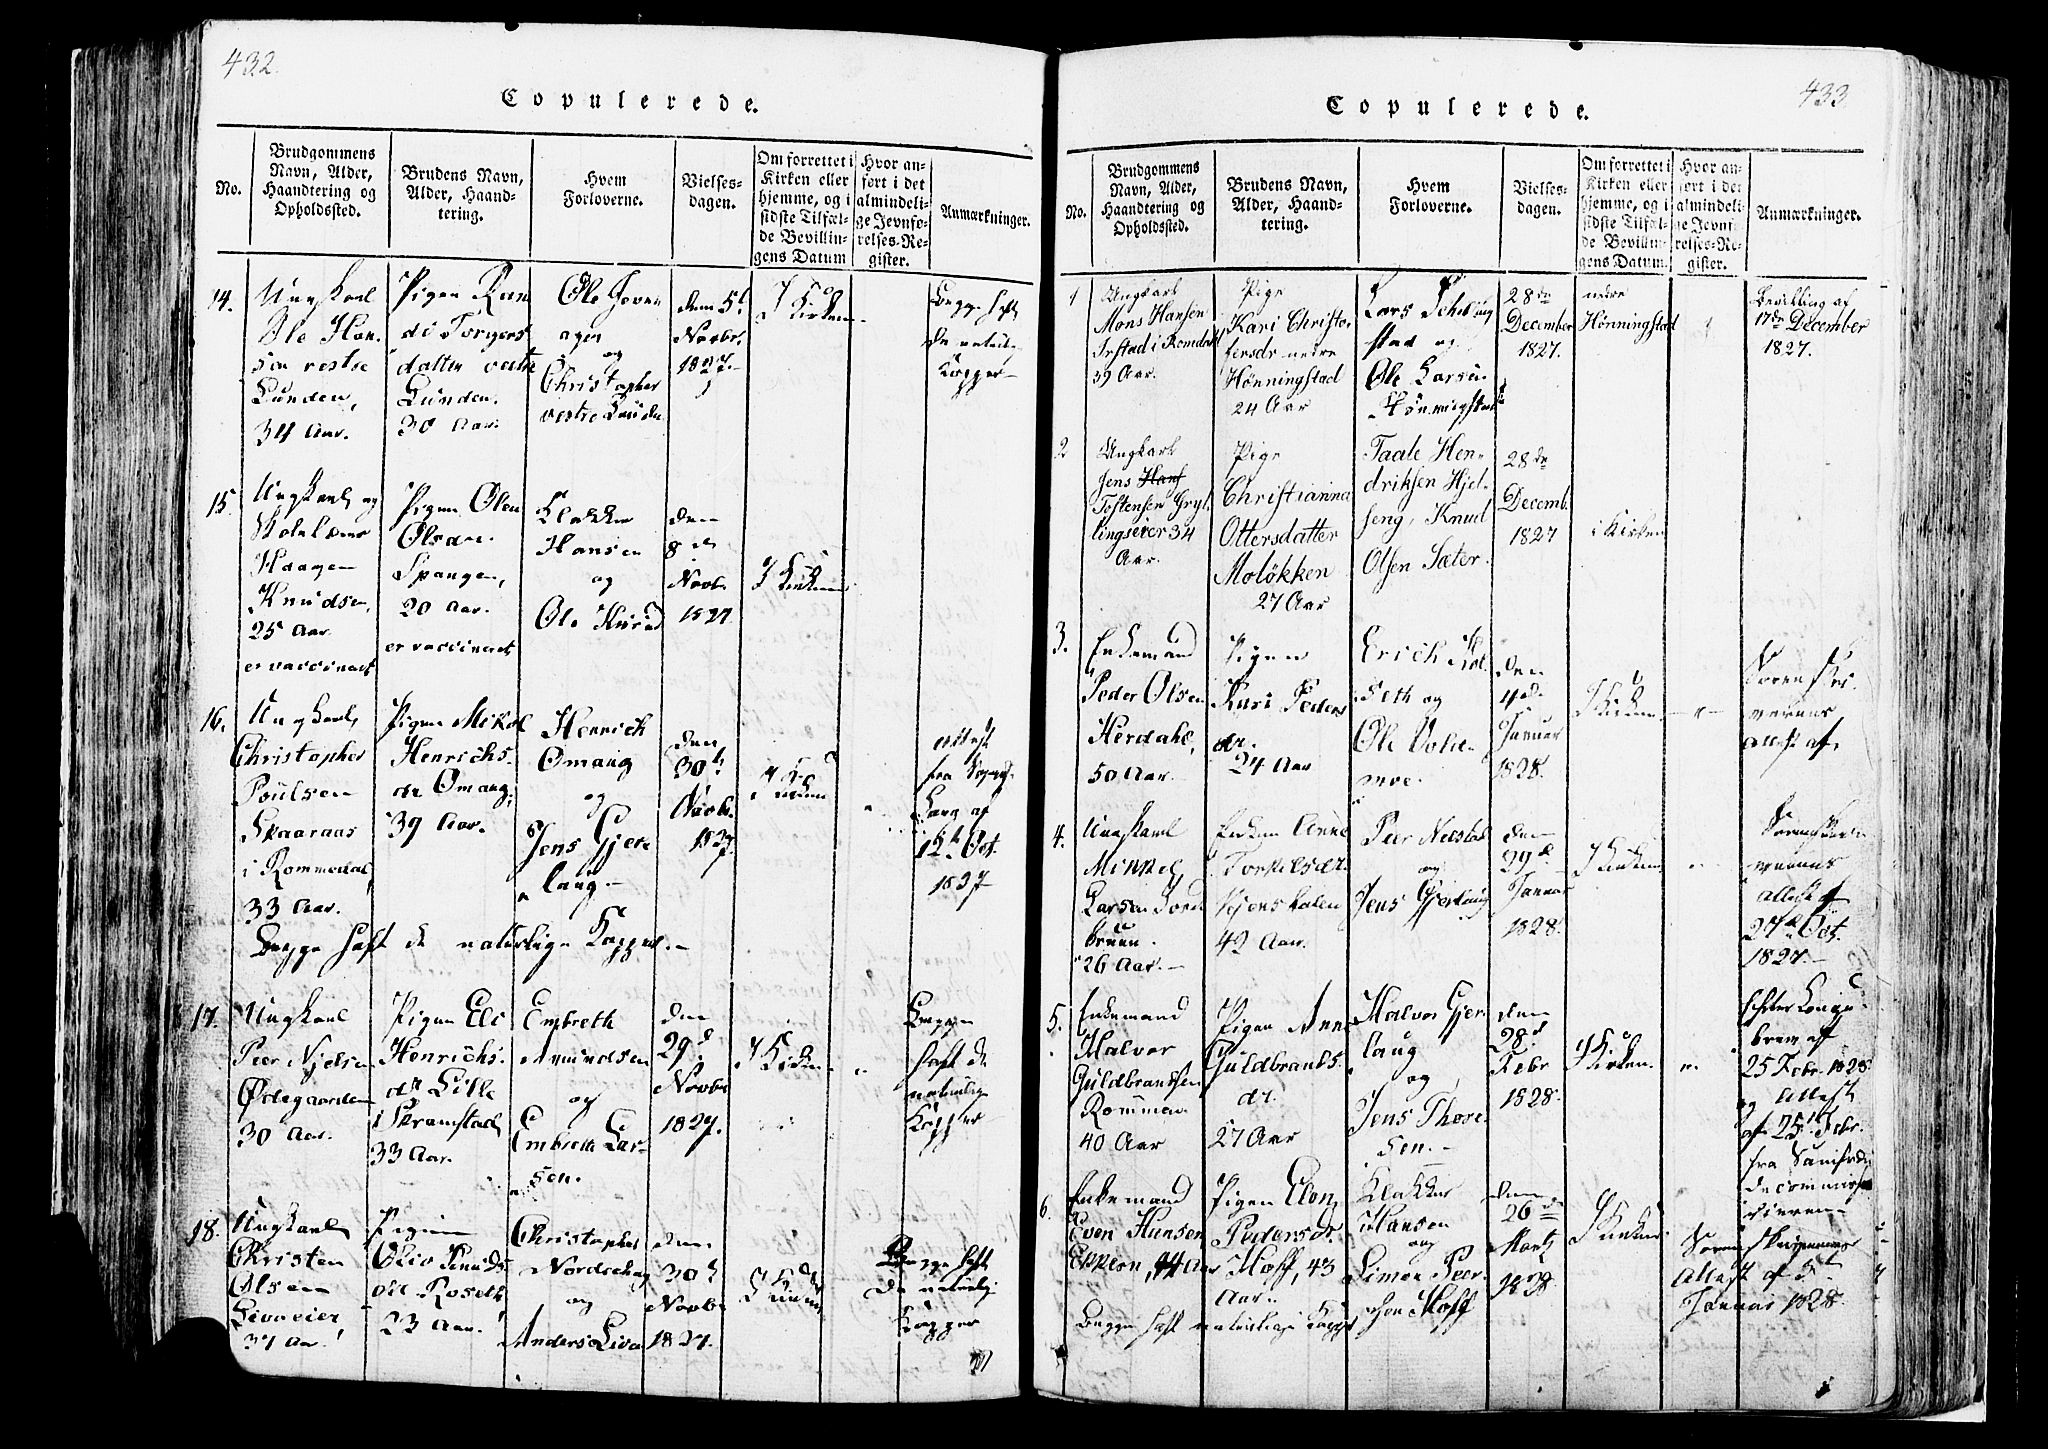 432.
Copulerede.
No.
Brudgommens
Navn, Alder,
Haandtering og
Opholdssted.
Brudens Navn,
Alder, Haand-
tering.
Hvem
Forloverne.
Vielses-
dagen.
Om forrettet i
Kirken eller
hjemme, og i
sidste Tilfæl-
de Bevillin-
gens Datum
Hvor an-
ført i det
almindeli-
ge Jevnfø-
relses-Re-
gister.
Anmærkninger.
14.
Ungkarl
Ole Han-
sen vestre
Lunden,
34 Aar.
Pigen Ran
di Torgers
datter vestre
Lunden.
30 Aar.
Ole Goven
ager
og
Christopher
vestre Lunden
dem 5t
Novbr.
1827.
I Kirken
Begge haft
de naturlige
Kopper
15.
Ungkarl og
Skolelærer
Haagen
Knudsen,
25 Aar
er vaccineret
Pigen Olea
Olsdr.
Spangen,
20 Aar.
er vaccineret
Klokker
Hansen
og
Ole Knud
den
8de
Novbr.
1827.
I Kirken
16.
Ungkarl
Christopher
Poulsen
Skaaraas
i Rommedal,
33 Aar.
Pigen Mikol
Henrichs-
dr Omang,
39 Aar.
Henrich
Omang
og
Jens Gjer-
laug.
den
30t
Novbr.
1827.
I Kirken
Attest
fra
af
12te Oct.
1827
Begge haft de naturlige Kopper.
17.
Ungkarl
Peer Njelsen
Ødegaarden
30 Aar.
Pigen Eli
Henrichs-
dr Lille
i Skramstad
33 Aar.
Embreth
Amundsen
og
Embreth Lar-
sen.
den
29d
Novbr
1827.
I Kirken
Begge
haft de
naturlige
Kopper
18.
Ungkarl
Christen
Olsen
Livaeier
37 Aar
Pigen
Olia Knuds
dr Roseth
23 Aar.
Christopher
Nordschoug
og
Anders Liva
den
30t
Novbr
1827.
I Kirken
Begge haft
de naturlige
Kopper
433.
Copulerede.
No.
Brudgommens
Navn, Alder,
Haandtering og
Opholdssted.
Brudens Navn,
Alder, Haand-
tering.
Hvem
Forloverne.
Vielses-
dagen.
Om forrettet i
Kirken eller
hjemme, og i
sidste Tilfæl-
de Bevillin-
gens Datum.
Hvor an-
ført i det
almindeli-
ge Jevnfø-
relses-Re-
gister.
Anmærkninger.
1
Ungkarl
Mons Hansen
Irstad i Romdahl
39 Aar.
Pige
Kari Christo-
fersdr nedre
Hønningstad
24 Aar
Lars
stad og
Ole Larsen
Hønningstad
28de
December
1827.
nedre
Hønningstad
Bevilling af
17de December
1827.
2
Ungkarl
Jens Hans
Tostensen Gryl-
lingseier 34
Aar.
Pige
Christianna
Ottersdatter
Moløkken
27 Aar
Taale Hen-
driksen Hjel-
seng, Knud
Olsen Sæter.
28de
Decemb.
1827
i Kirken
3.
Enkemand
Peder Olsen
Herdahl,
50 Aar.
Pigen
Kari Peders
dr.
24 Aar
Erich Kol-
seth og
Ole Volle-
moe.
den
4de
Januar
1828.
I Kirken
Sorenskri-
verens
Attest af
4.
Ungkarl
Mikkel
Larsen Jord-
bruun.
26 Aar.
Enken Anne
Torkilsdr.
Vejenskalen
42 Aar.
Peer Nelstad
og
Jens Gjerlaug
den
29d
Januar
1828.
I Kirken
Sorenskri-
verens
Attest af
27de Oct.
1827.
5.
Enkemand
Halvor
Guldbrandsen
Rommen
40 Aar
Pigen Anne
Guldbrands-
dr.
27 Aar
Halvor Gjer-
laug
og
Jens Thore-
sen.
den
28d
Febr
1828.
I Kirken
brev af
25 Febr. 1828
og Attest
af 25t Febr.
fra Samfrænde
decommis-
sionen
6.
Enkemand
Even Hansen
Eskern, 44 Aar
Pigen Elen
Pedersdr.
Hoff, 43
Aar.
Klokker
Hansen
og
Simen Peer-
sen Hoff
den
26de
Martz
1828.
I Kirken
Sorenskriverens
Attest af 5t
Januar 1828.
Begge haft naturlige Kopper